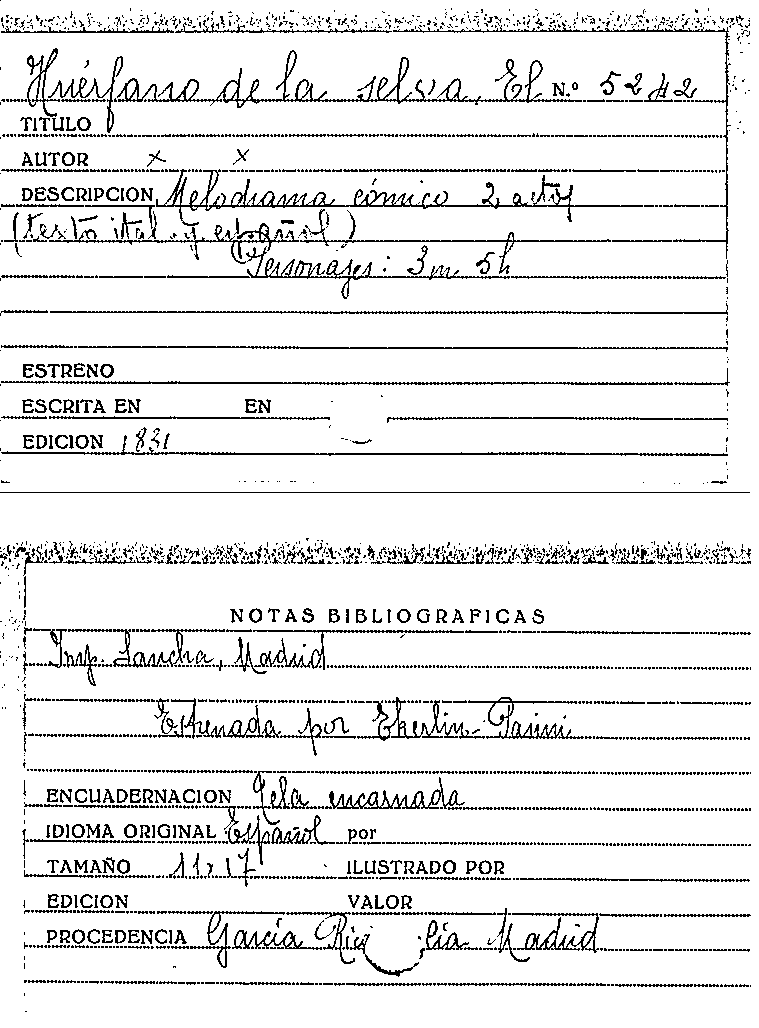 Huérfano de la selva, El N.º 5242
TITULO
AUTOR x x
DESCRIPCION Melodrama cómico 2 actos
(texto ital. y español)
Personajes: 3m 5h
ESTRENO
ESCRITA EN EN
EDICION 1831
NOTAS BIBLIOGRAFICAS
Imp. Sancha, Madrid
Estrenada por Ekerlin-Pasini
ENCUADERNACION Tela encarnada
IDIOMA ORIGINAL Español por
TAMAÑO 11x17 ILUSTRADO POR
EDICION VALOR
PROCEDENCIA García Rico Cía Madrid